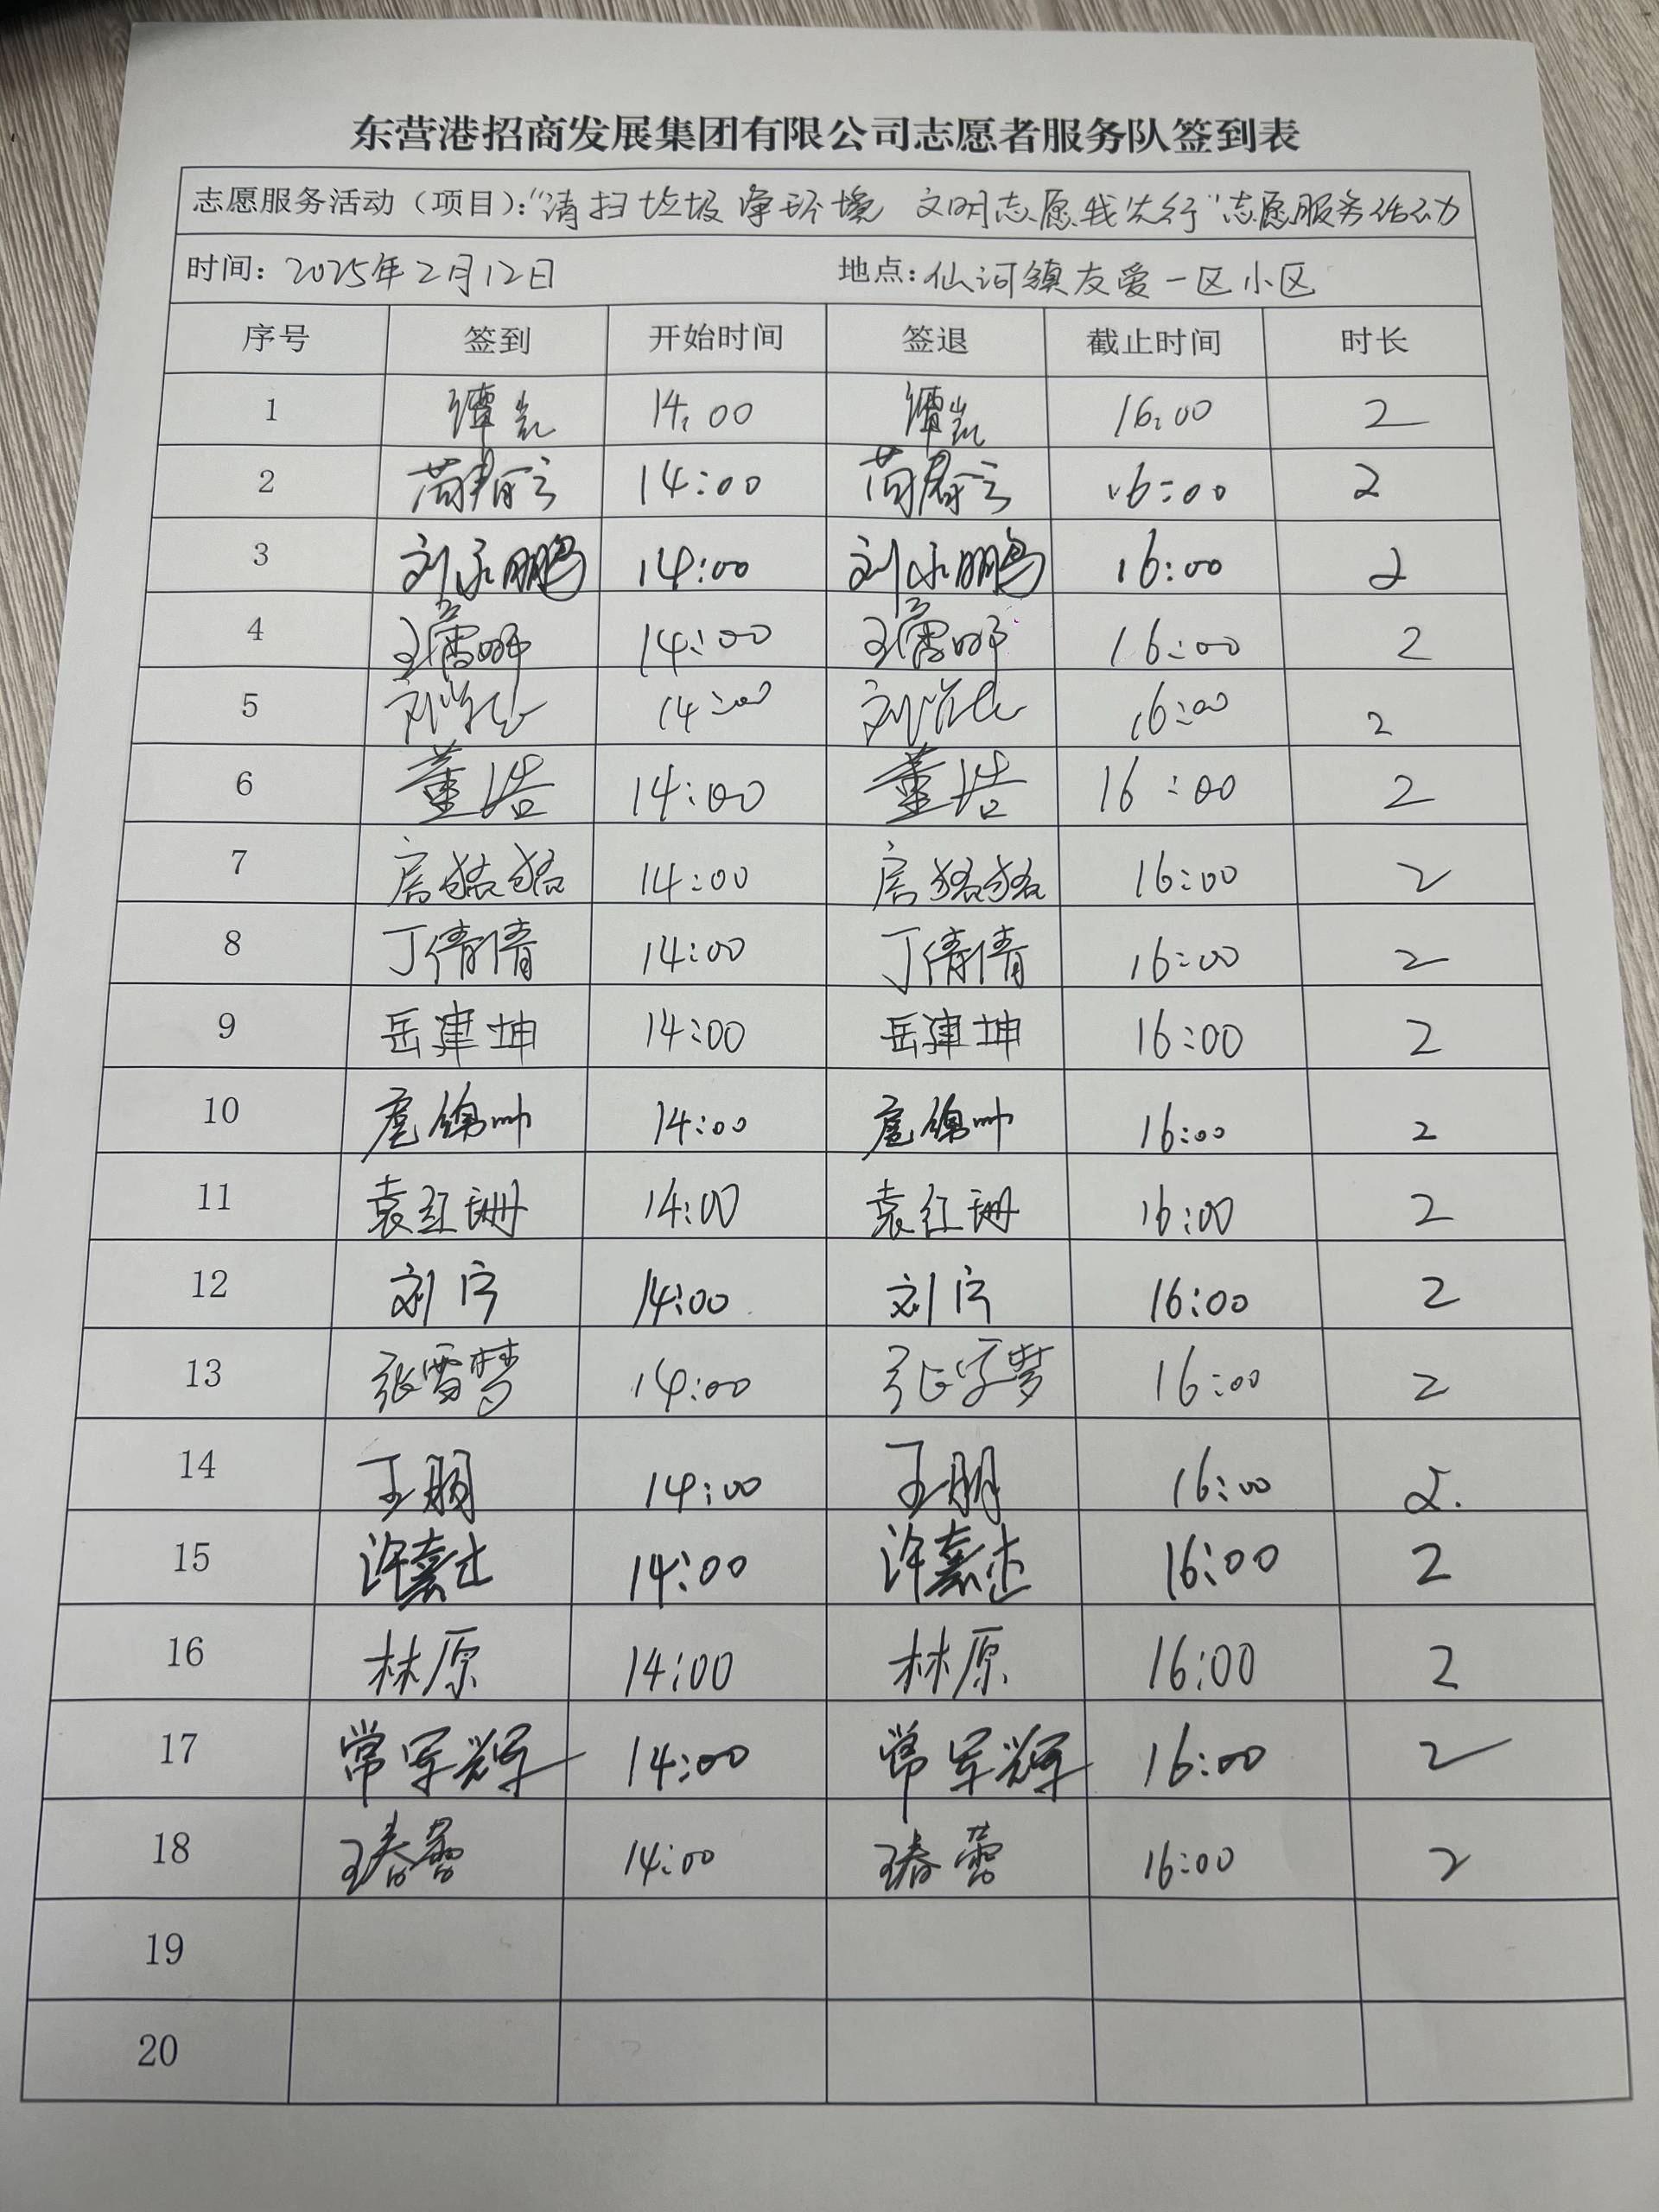 东营港招商发展集团有限公司志愿者服务队签到表
志愿服务活动（项目）：“清扫垃圾净环境 文明志愿我先行”志愿服务活动
时间：2025年2月12日 地点：仙河镇友爱一区小区
序号 签到 开始时间 签退 截止时间 时长
1 谭凯 14:00 谭凯 16:00 2
2 14:00 16:00 2
3 刘永鹏 14:00 刘永鹏 16:00 2
4 14:00 16:00 2
5 14:00 16:00 2
6 董浩 14:00 董浩 16:00 2
7 14:00 16:00 2
8 丁倩倩 14:00 丁倩倩 16:00 2
9 岳建坤 14:00 岳建坤 16:00 2
10 14:00 16:00 2
11 袁红珊 14:00 袁红珊 16:00 2
12 刘宁 14:00 刘宁 16:00 2
13 张雪梦 14:00 张雪梦 16:00 2
14 王朋 14:00 王朋 16:00 2.
15 14:00 16:00 2
16 林原 14:00 林原 16:00 2
17 常军辉 14:00 常军辉 16:00 2
18 王春蕾 14:00 王春蕾 16:00 2
19
20